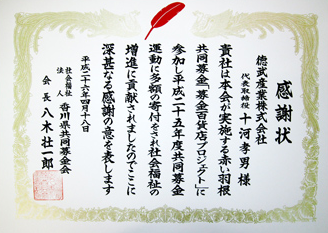 感謝状
徳武産業株式会社
代表取締役 十河孝男 様
貴社は本会が実施する赤い羽根
共同募金「募金百貨店プロジェクト」に
参加し平成二十五年度共同募金
運動に多額の寄付をされ社会福祉の
増進に貢献されましたのでここに
深甚なる感謝の意を表します
平成二十六年四月十八日
社会福祉法人 香川県共同募金会
会長 八木壮一郎